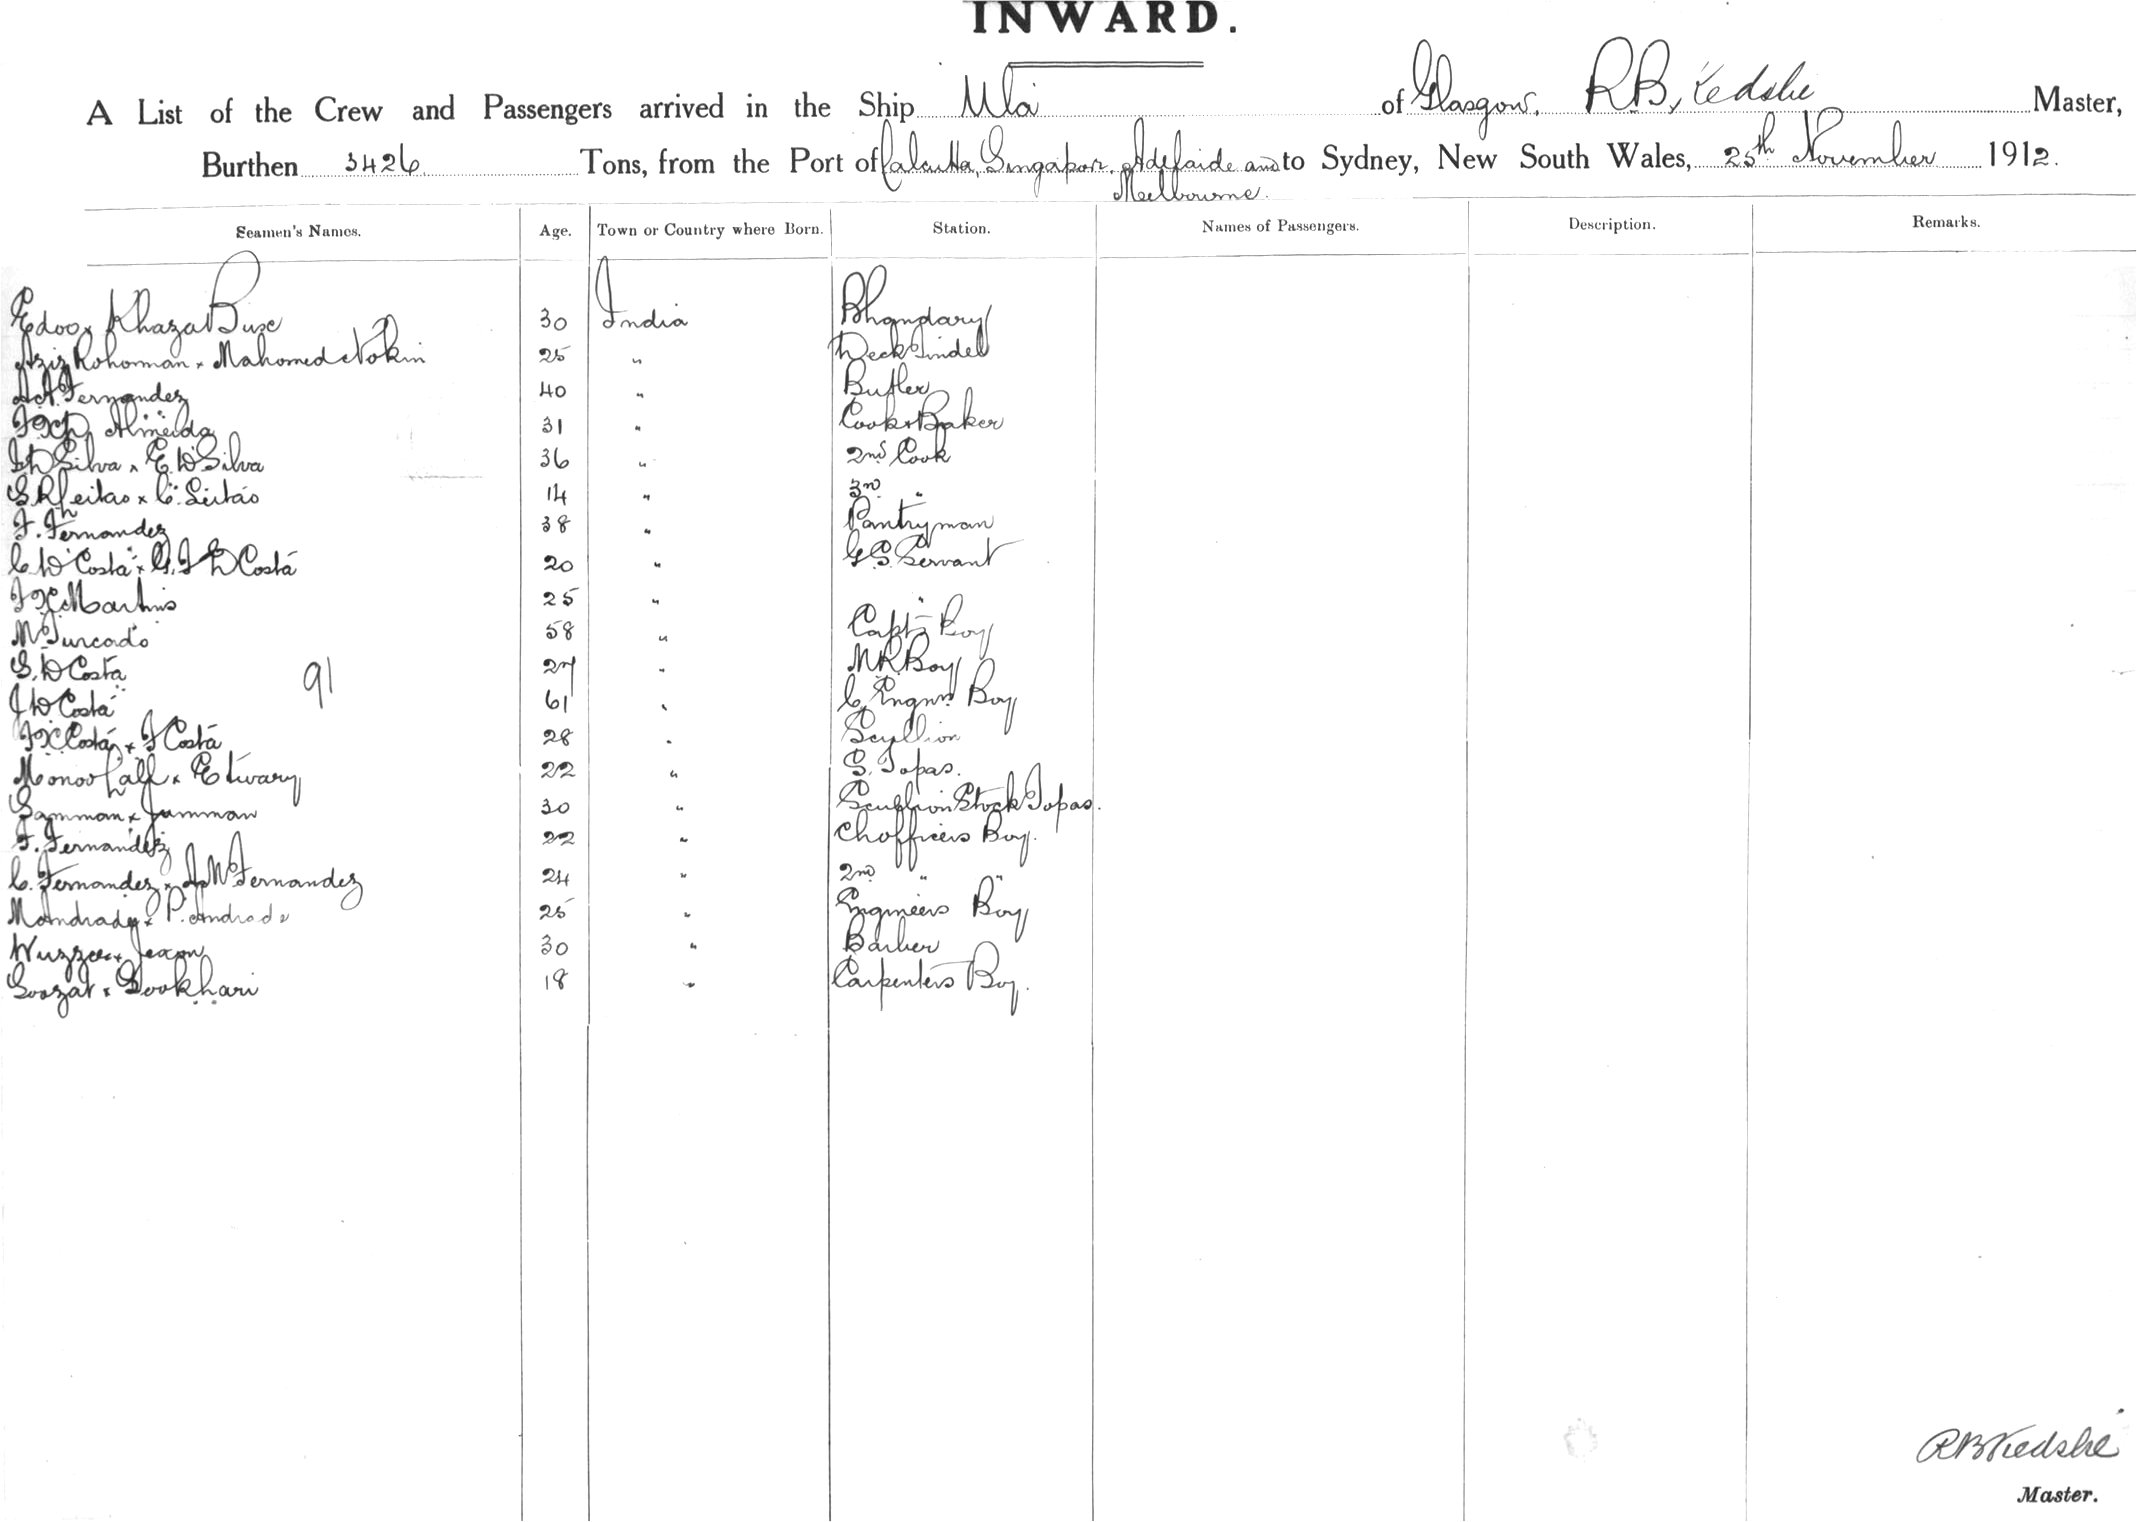 INWARD.
A List of the Crew and Passengers arrived in the Ship Ula of Glasgow, R B, Master,
Burthen 3426 Tons, from the Port of Calcutta, Singapore, Adelaide and to Sydney, New South Wales, 25th November 1912.
Melbourne.
Seamen's Names. Age. Town or Country where Born. Station. Names of Passengers. Description. Remarks.
Edoo x Khaza Bux 30 India Bhandary
Aziz Rohoman x Mahomed Nokin 25 " Deck Tindel
A A. Fernandez 40 " Butler
Almeida 31 " Cook & Baker
D Silva x E. D'Silva 36 " 2nd Cook
S R Leitao x C. Leitão 14 " 3rd "
F. Fernandez 38 " Pantryman
C. D'Costa x G. F D'Costa 20 " G. S. Servant
F X Martins 25 " "
M Furcado 58 " Capt's Boy
S. D Costa 27 " M R Boy
J D Costa 61 " C. Engnrs Boy
91
F X Costa x F Costa 28 " Scullion
Monoo Lall x Etwary 22 " S. Topas.
Samman x Jumman 30 " Scullion Stock Topas.
F. Fernandez 22 " Ch Officers Boy.
C. Fernandez x A M Fernandez 24 " 2nd " "
M Andrade x P. Andrade 25 " Engineers Boy
Wuzzeer x 30 " Barber
Goozar x Sookhari 18 " Carpenters Boy.
R B
Master.